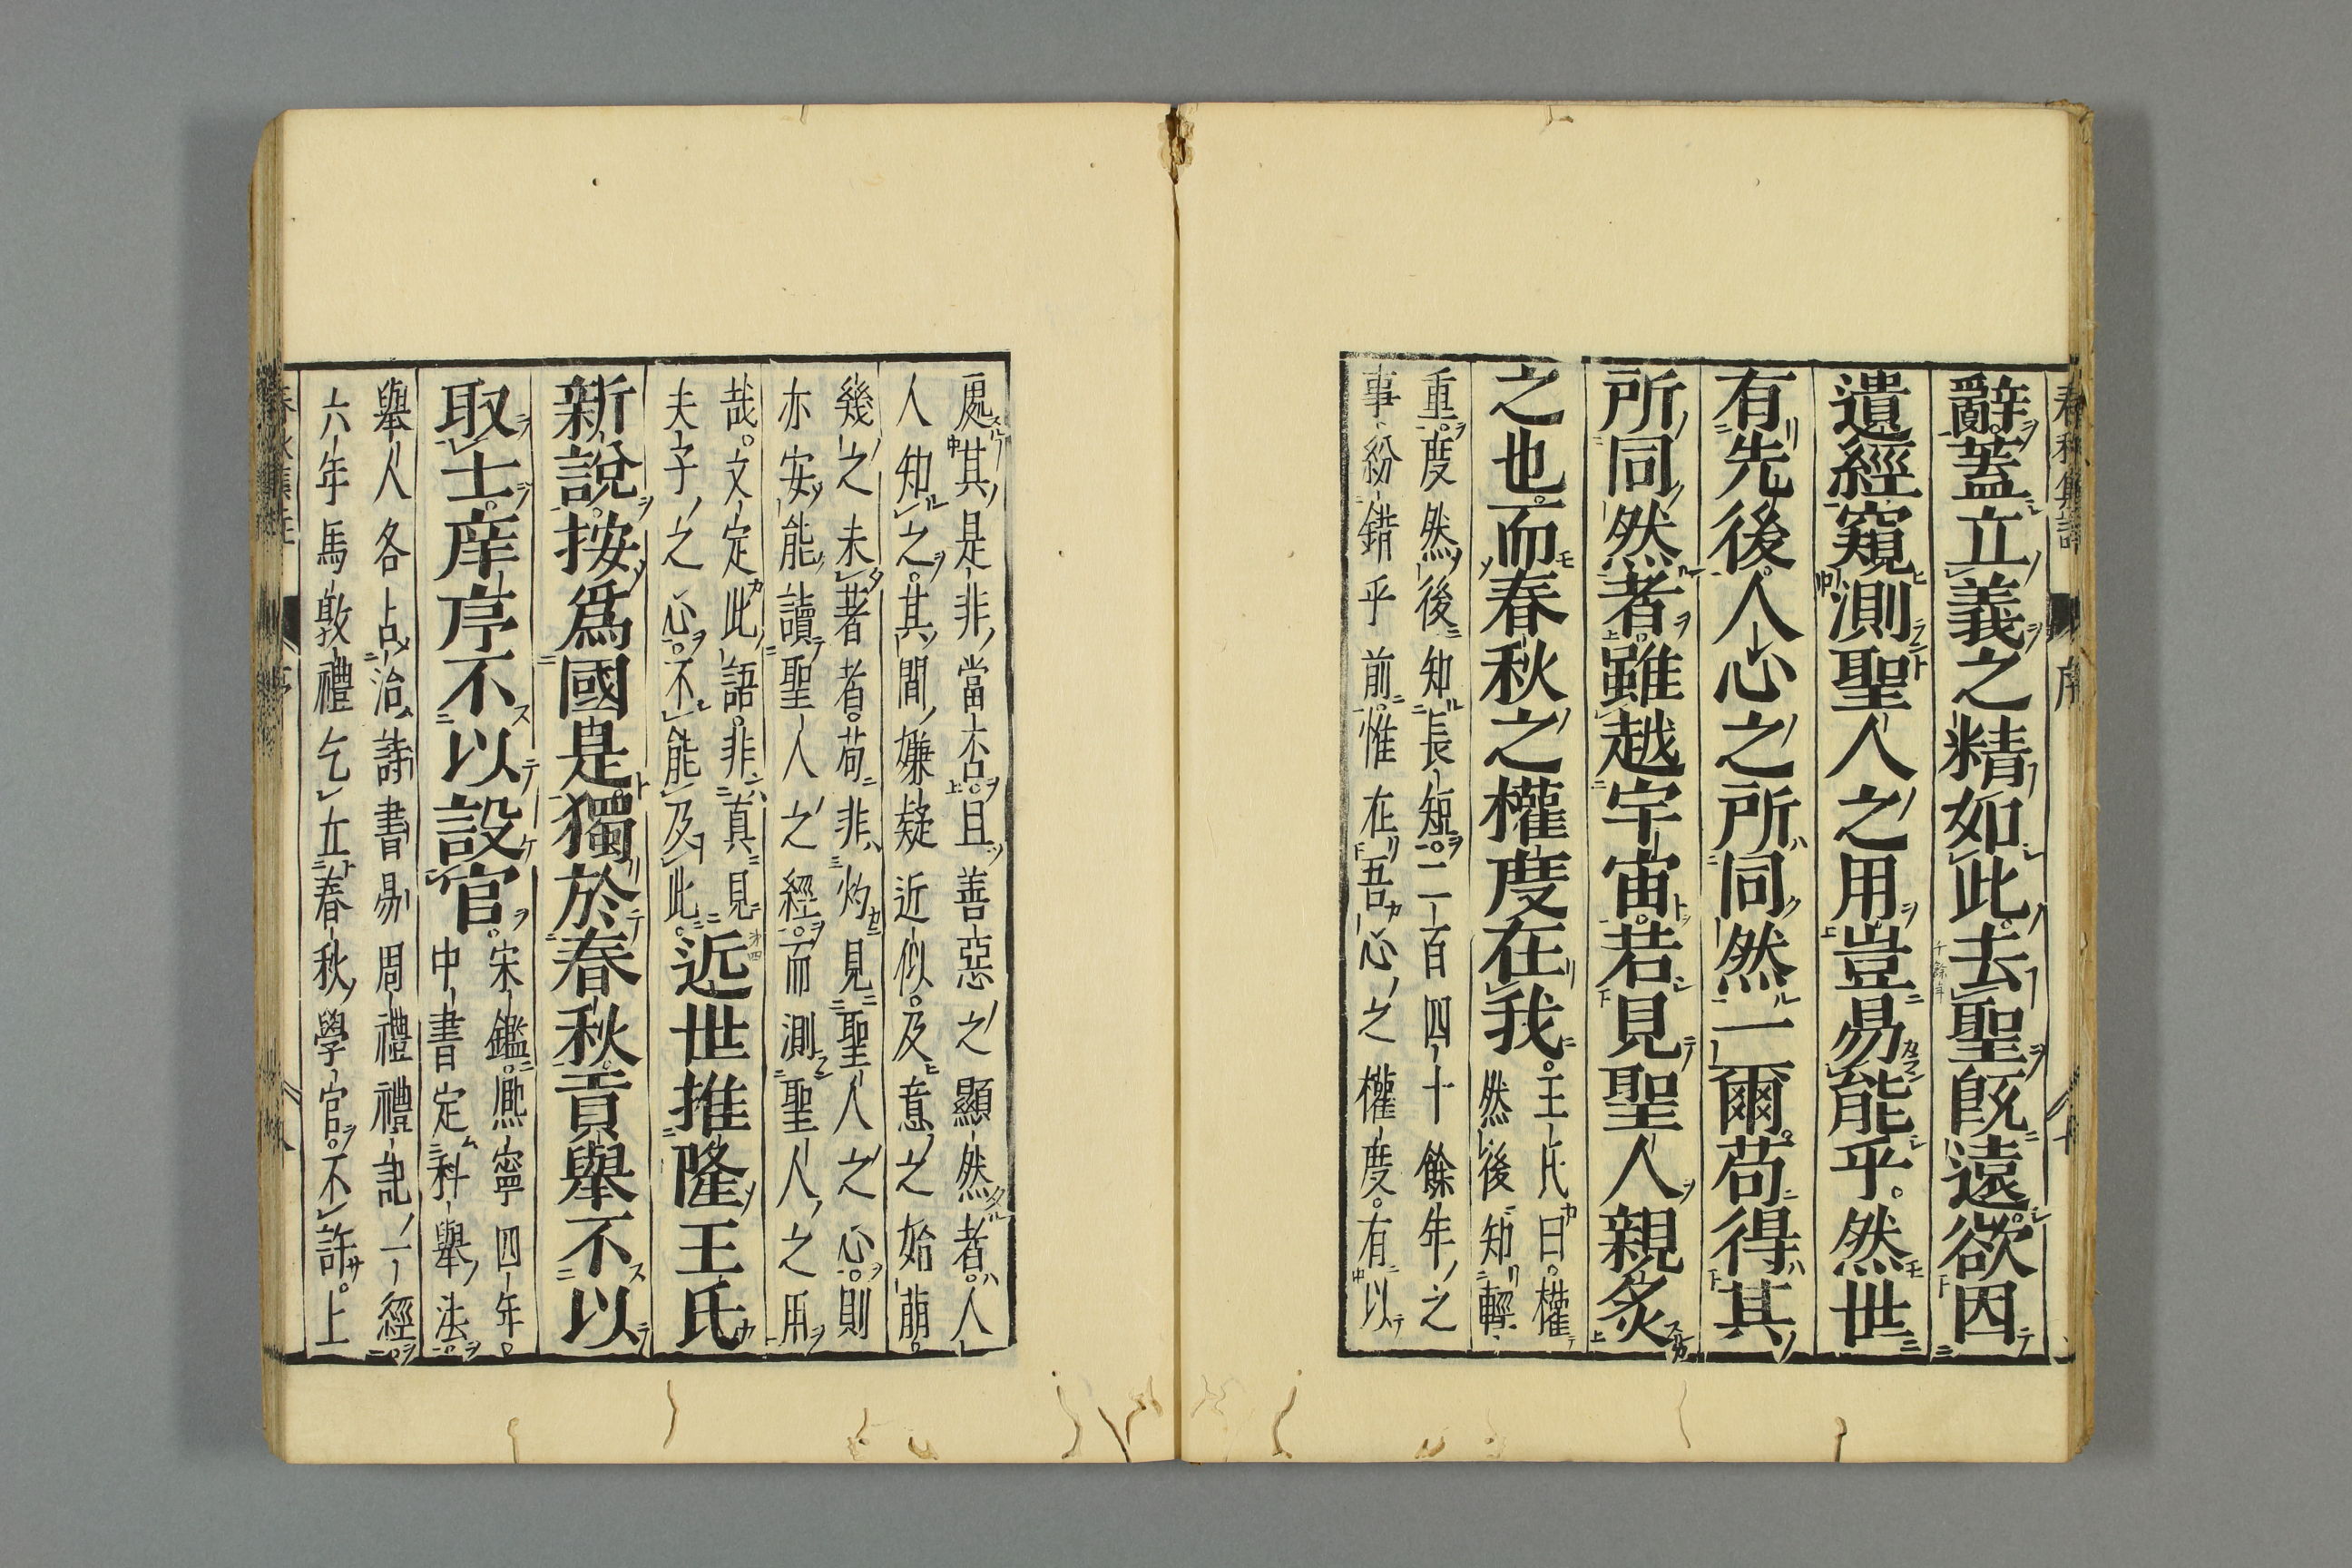 辭蓋立義之精如此去聖旣遠欲因
千餘年
遺經窺測聖人之用豈易能乎然世
有先後人心之所同然一爾苟得其
所同然者雖越宇宙若見聖人親炙
之也而春秋之權度在我
王氏曰權
然後知輕
重度然後知長短二百四十餘年之
事紛錯乎前惟在吾心之權度有以
處其是非當否且善惡之顯然者人
人知之其間嫌疑近似及意之始萠
幾之未著者苟非灼見聖人之心則
亦安能讀聖人之經而測聖人之用
哉文定此語非真見
夫子之心不能及此
近世推隆王氏
新說按爲國是獨於春秋貢舉不以
取士庠序不以設官
宋鑑熈寧四年
中書定科舉法
舉人各占治詩書易周禮禮記一經
六年馬敦禮乞立春秋學官不許上